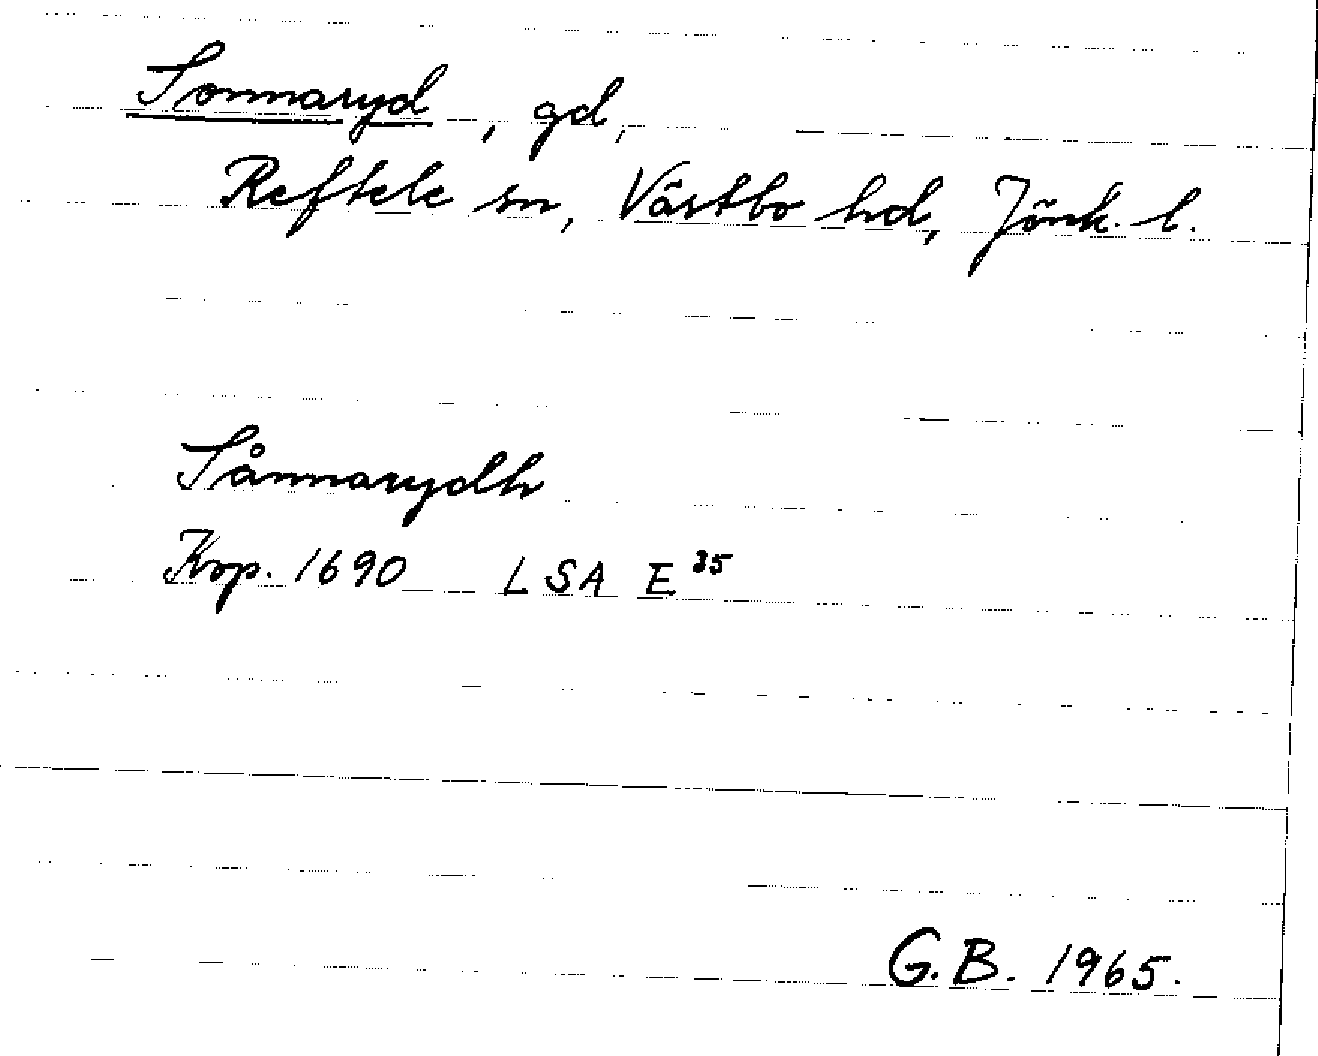 Sonnaryd, gd,
Reftele sn, Västbo hd, Jönk. l.
Sånnarydh
Kop. 1690 LSA E 35
G.B. 1965.